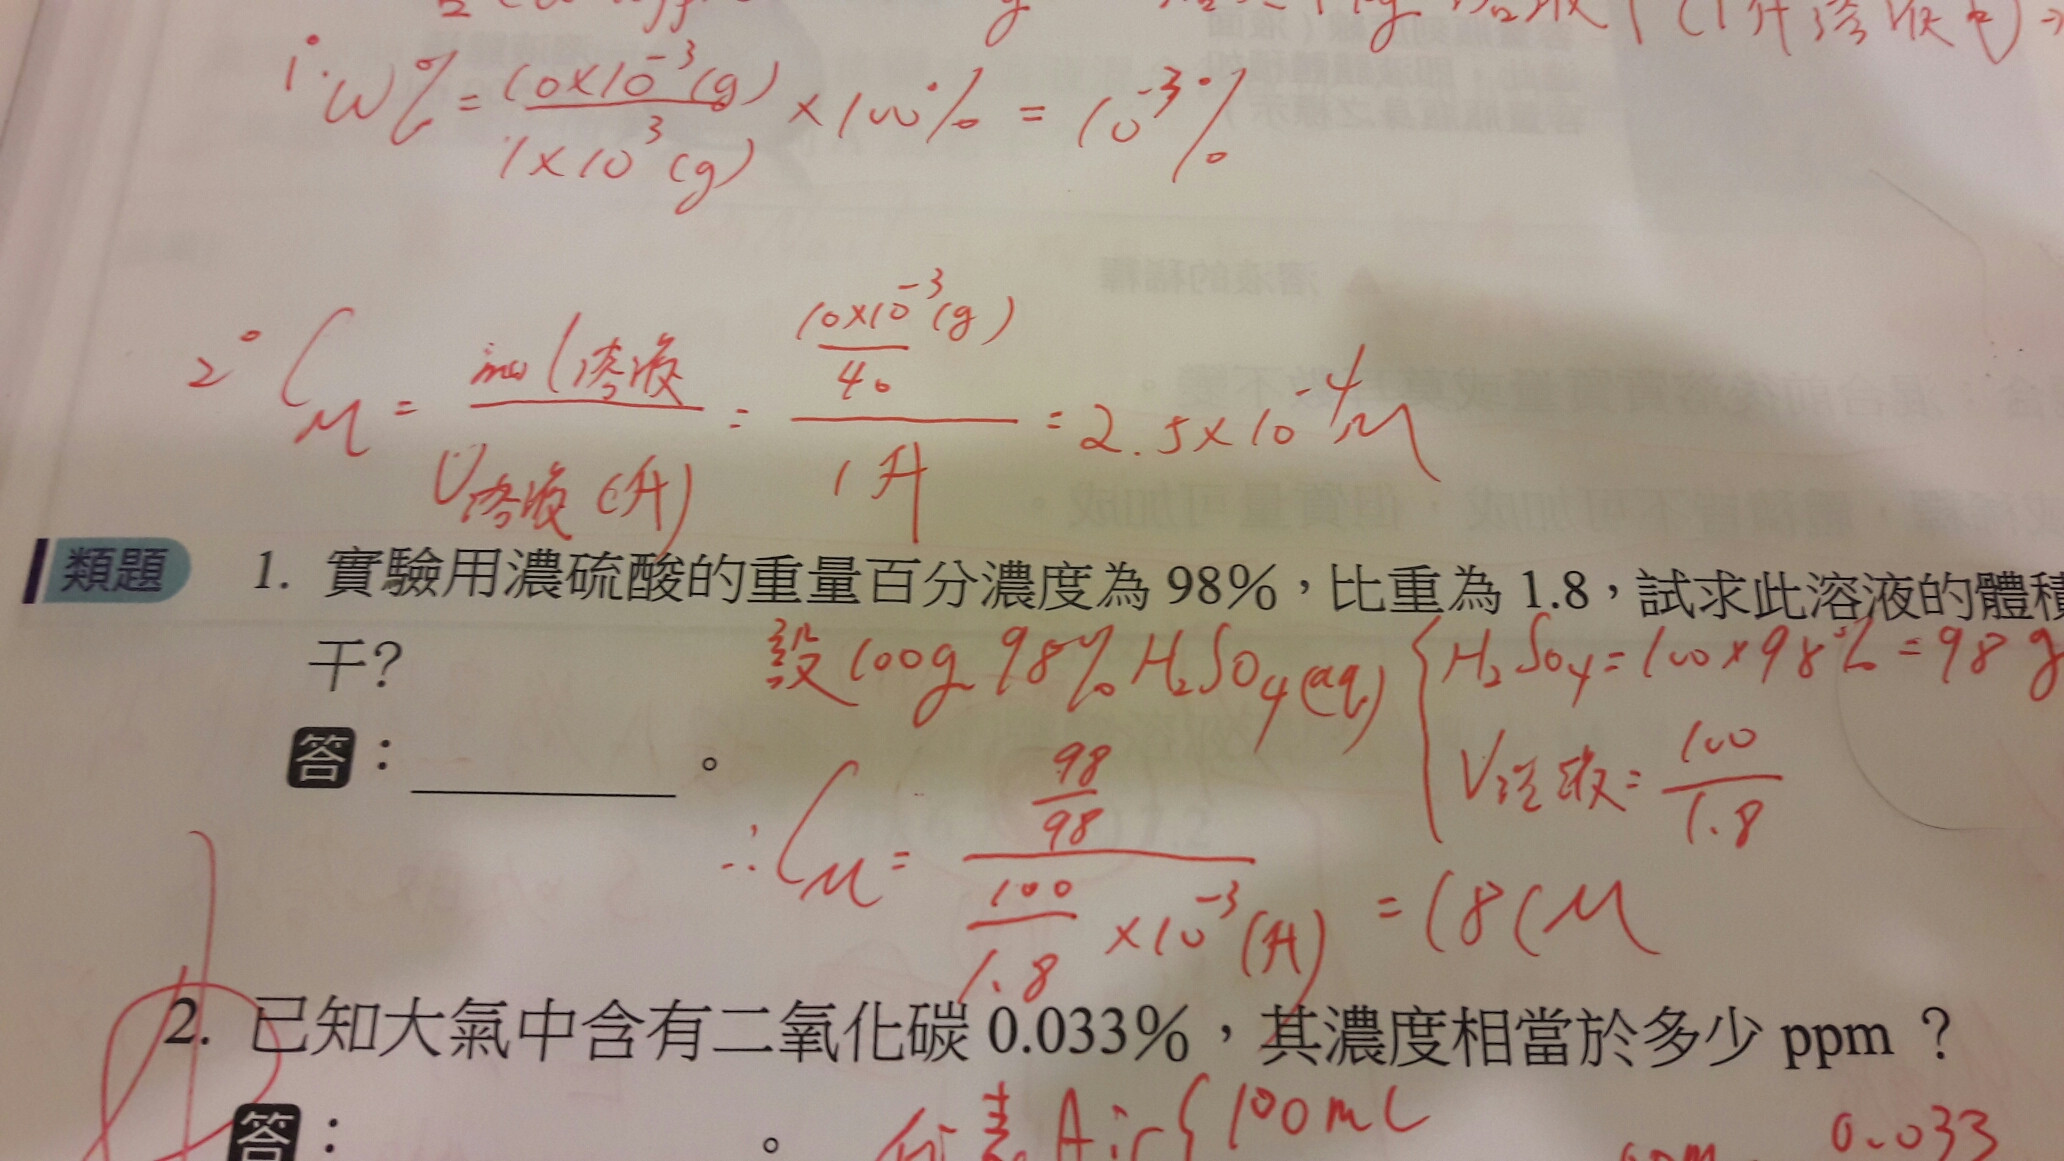 i. W% = 10×10⁻³(g) / 1×10³(g) ×100% = 10⁻³%
2° C_M = mol溶液 / V溶液(升) = (10×10⁻³(g) / 40) / 1升 = 2.5×10⁻⁴M
類題 1. 實驗用濃硫酸的重量百分濃度為98%，比重為1.8，試求此溶液的體積
干？
設100g 98% H₂SO₄(aq) { H₂SO₄=100×98%=98g
V溶液= 100/1.8
答：＿＿＿＿。
∴C_M = (98/98) / (100/1.8 ×10⁻³(升)) = 18(M
2. 已知大氣中含有二氧化碳0.033%，其濃度相當於多少ppm？
答： 。
Air { 100mL
0.033